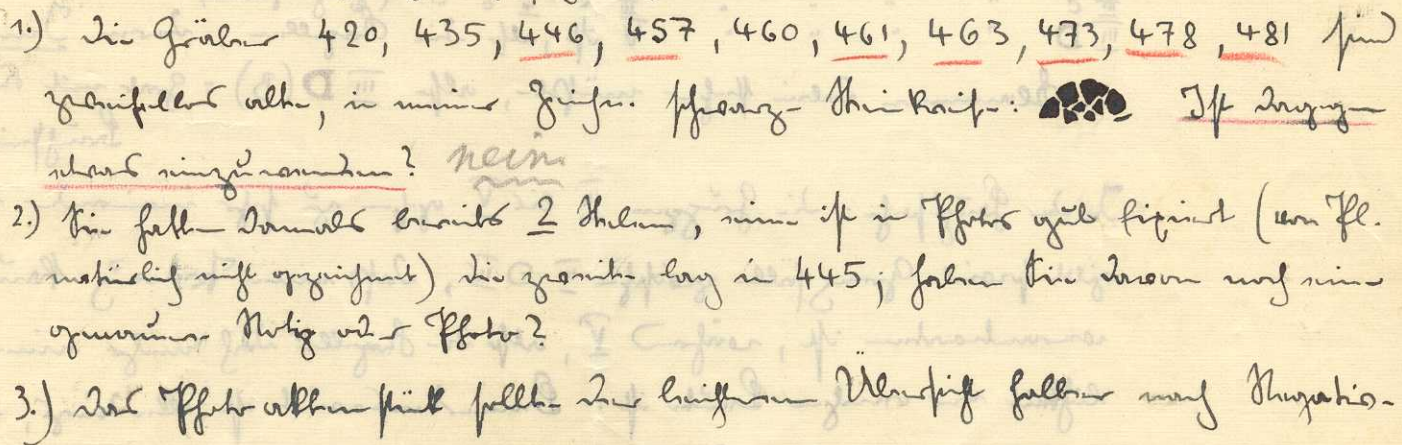 1.) Die Gräber 420, 435, 446, 457, 460, 461, 463, 473, 478, 481 sind
zweifellos alte, in meiner Zeichn. schwarze Steinkreise: Ist dagegen
etwas einzuwenden? nein
2.) Sie hatten damals bereits 2 Stelen, eine ist in Photos gut fixiert (von Pl.
natürlich nicht gezeichnet) die zweite lag in 445; haben Sie davon noch eine
genauere Notiz oder Photo?
3.) Das Photoaktenstück sollte der leichteren Übersicht halber nach Negativ-